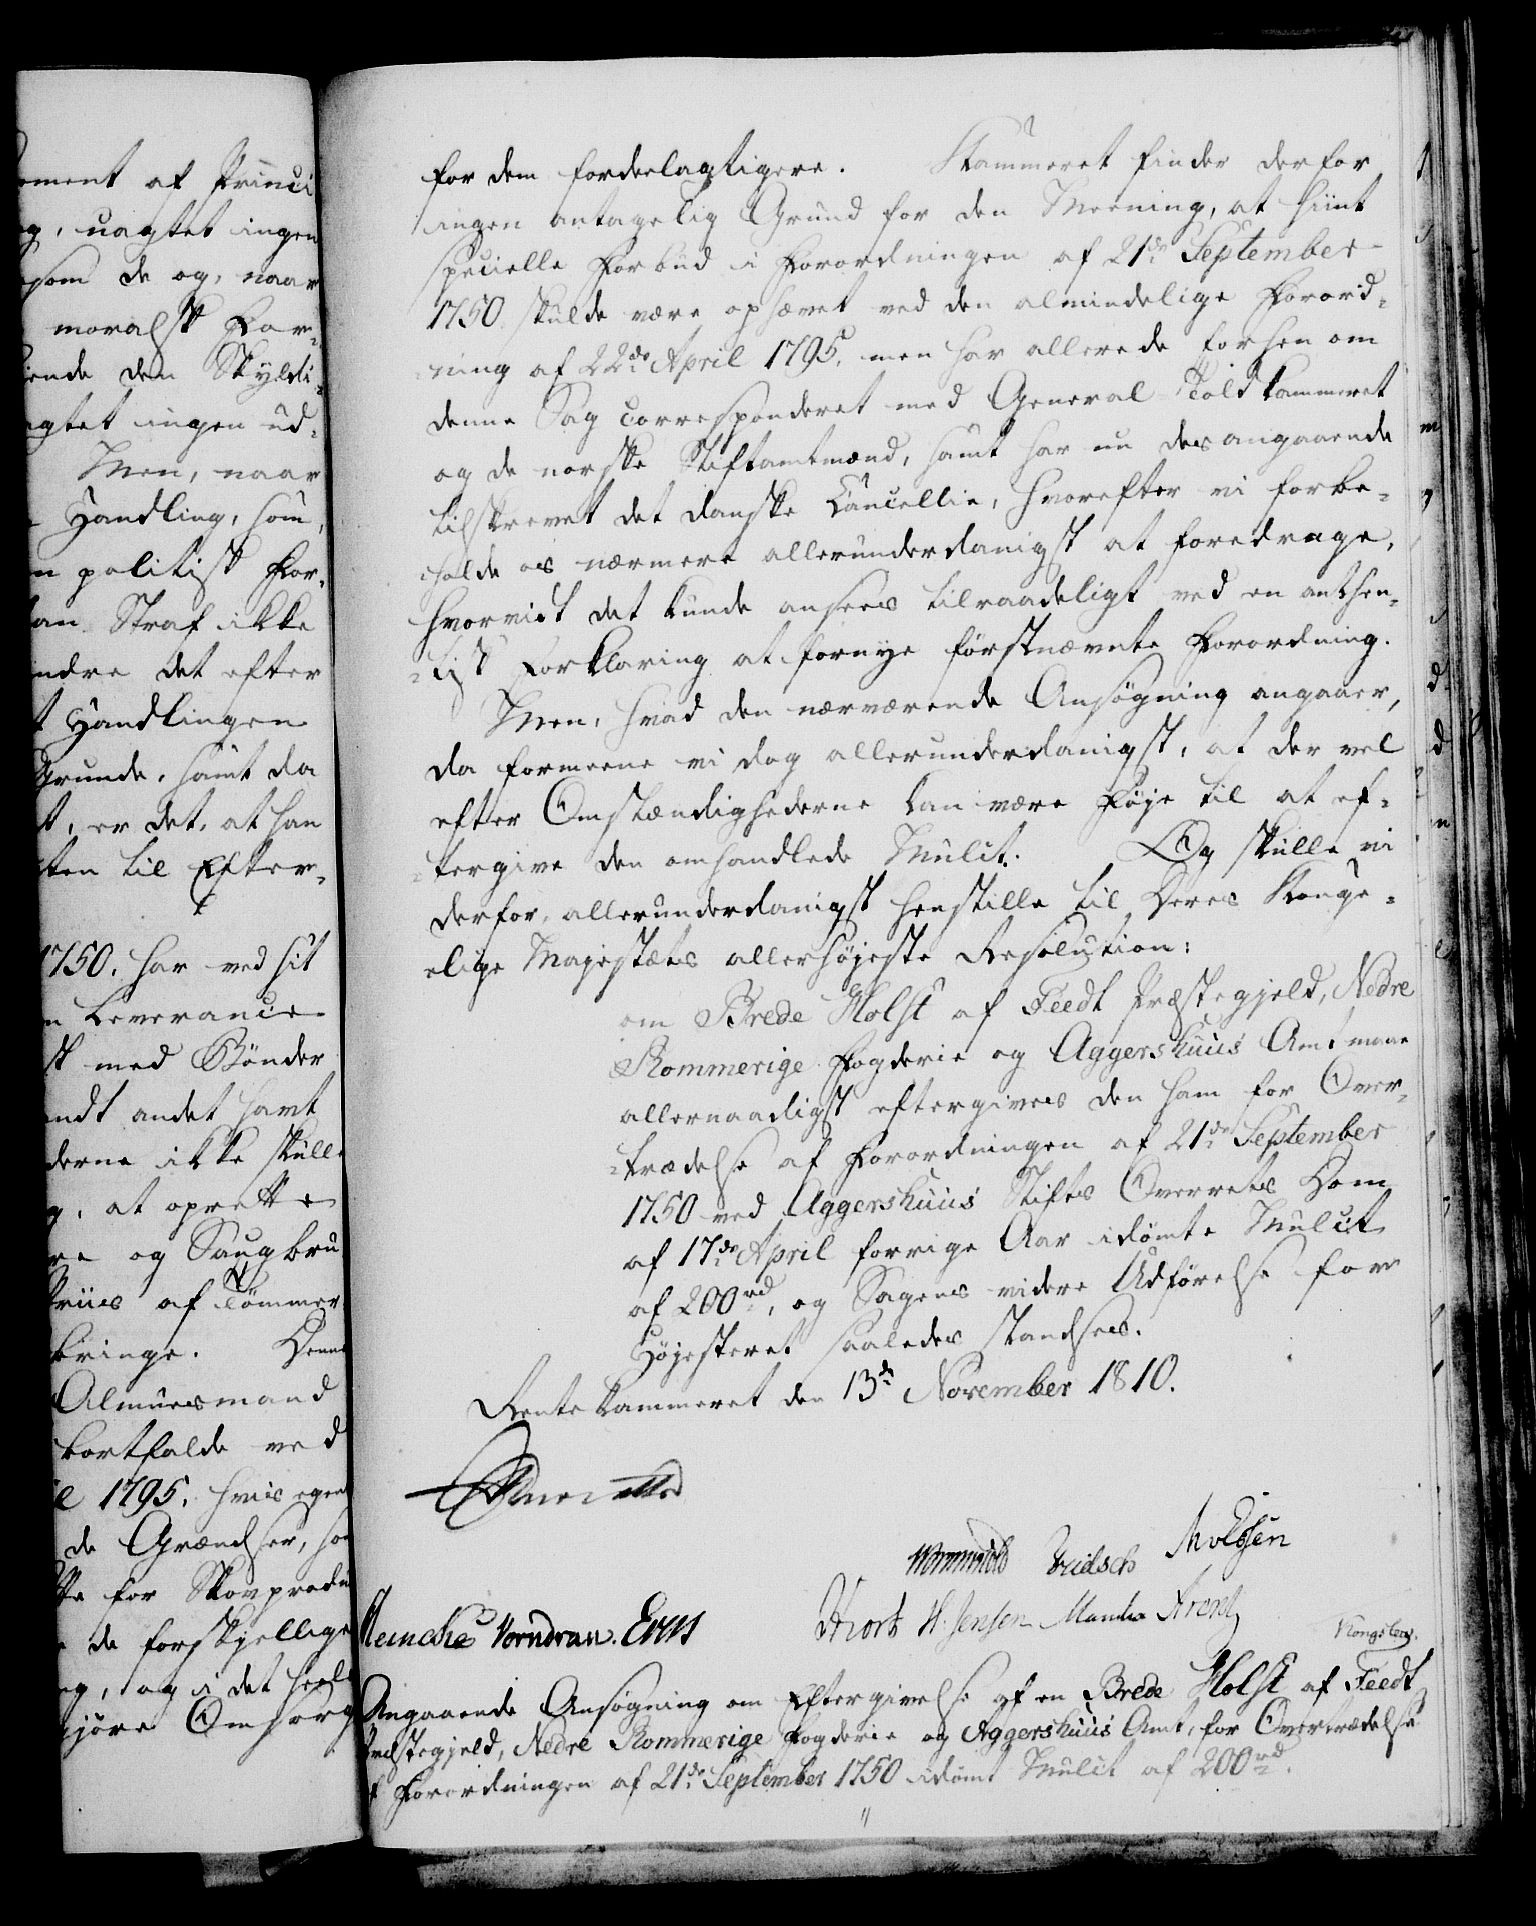 oment af Princi
g, uagtet ingen
som de og, naar
moralsk For-
ende den Skyldi-
agtet ingen ud-
Men, naar
Handling, som,
n politisk For-
an Straf ikke
ndre det efter
t Handlingen
Grunde, samt da
t, er det, at han
ten til Efter-
1750, har ved sit
n Leverance
st med Bønder
ndt andet havt
derne ikke skulle
g, at oprette
re og Saugbru
Priis af Tømmer
bringe. Denne
Almuesmand
bortfalde ved
l 1795, hvis egent
de Grændser, so
tte for Skovprodu
de forskjellige
ng, og i det heele
gjøre Omsorg
for dem fordeelagtigere. Kammeret finder derfor
ingen antagelig Grund for den Meening, at hiint
specielle Forbud i Forordningen af 21de September
1750 skulde være ophævet ved den almindelige Forord-
ning af 22de April 1795, men har allerede forhen om
denne Sag corresponderet med General-Toldkammeret
og de norske Stiftamtmænd, samt har nu desangaaende
tilskrevet det danske Cancellie, hvorefter vi forbe-
holde os nærmere allerunderdanigst at foredrage,
hvorvidt det kunde ansees tilraadeligt ved en authen-
tisk Forklaring at fornye førstnævnte Forordning.
Men, hvad den nærværende Ansøgning angaaer,
da formeene vi dog allerunderdanigst, at der vel
efter Omstændighederne kan være Føje til at ef-
tergive den omhandlede Mulct. Og skulle vi
derfor allerunderdanigst henstille til Deres Konge-
elige Majestæts allerhøjeste Resolution:
om Brede Holst af Feedt Præstegjeld, Nedre
Rommerige Fogderie og Aggershuus Amt maae
allernaadigst eftergives den ham for Over-
trædelse af Forordningen af 21de September
1750 ved Aggershuus Stifts Overrets Dom
af 17de April forrige Aar idømte Mulct
af 200 rd, og Sagens videre Udførelse for
Højesteret saaledes standses.
Rentekammeret den 13de November 1810.
Wormskiold Moldsen
Meinche Vorndran. Hiort H. Jensen Arentz
Kongsberg.
Angaaende Ansøgning om Eftergivelse af en Brede Holst af Feedt
Præstegjeld, Nedre Rommerige Fogderie og Aggershuus Amt, for Overtrædelse
f Forordningen af 21de September 1750 idømt Mulct af 200 rd.